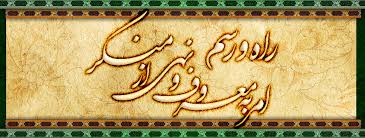 راه و رسم
امر به معروف و نهی از منکر